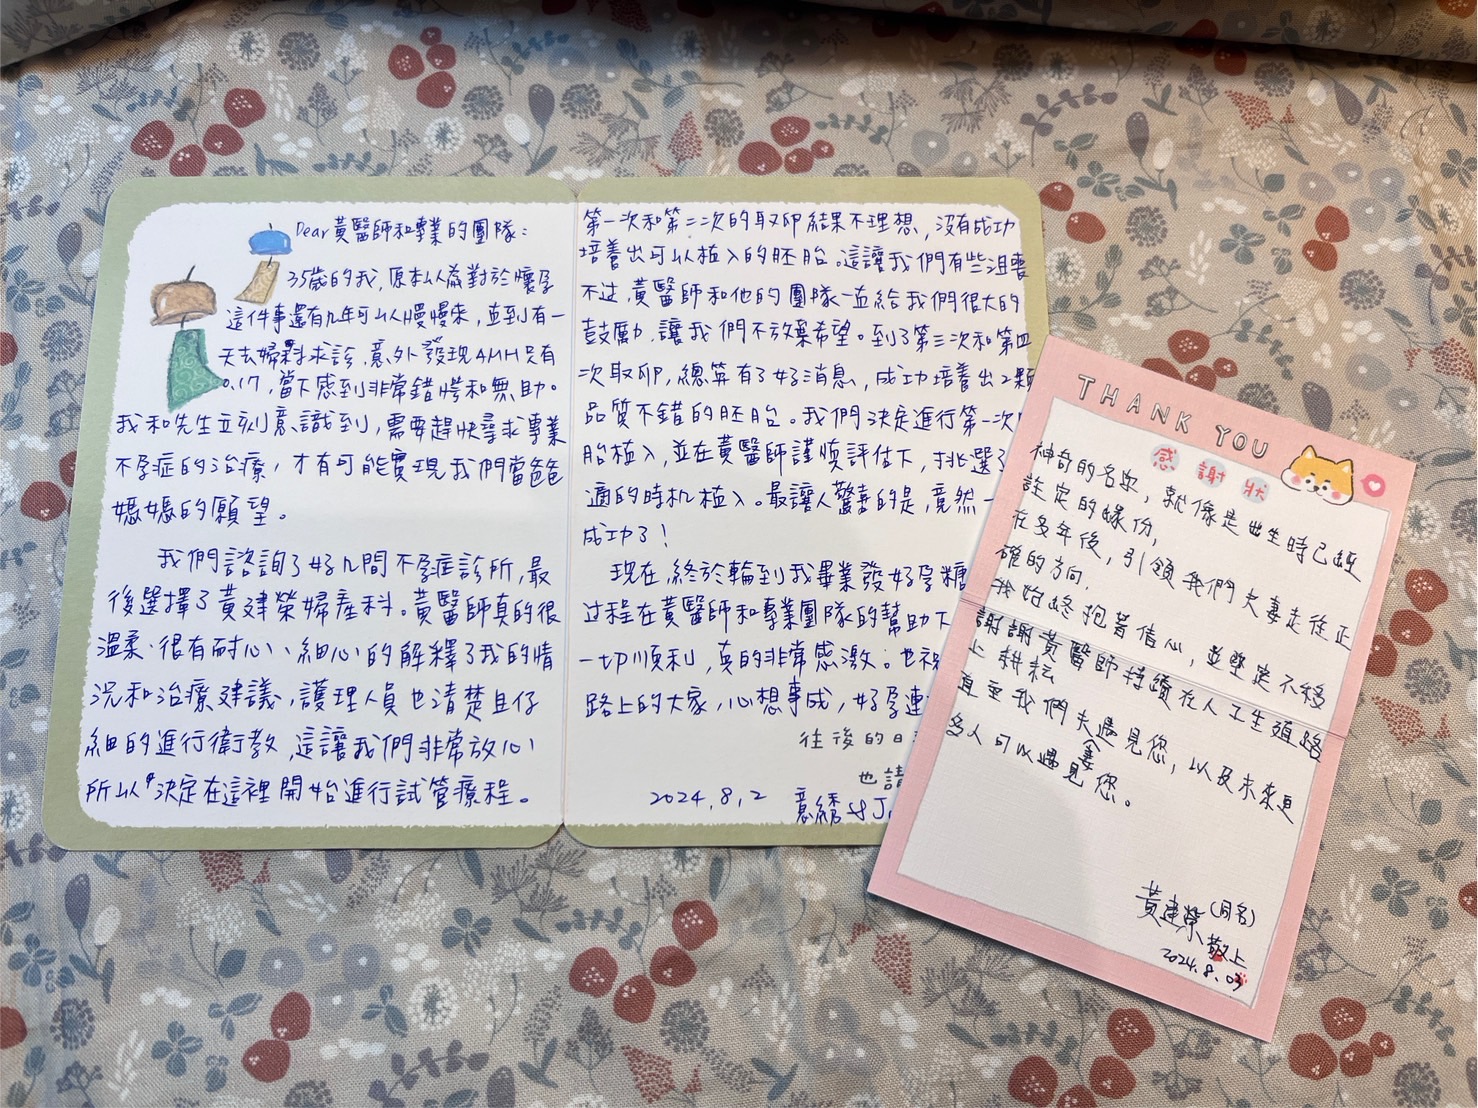 Dear黃醫師和專業的團隊：
35歲的我，原本以為對於懷孕
這件事還有幾年可以慢慢來，直到有一
天去婦科求診，意外發現AMH只有
0.17，當下感到非常錯愕和無助。
我和先生立刻意識到，需要趕快尋求專業
不孕症的治療，才有可能實現我們當爸
媽媽的願望。
我們諮詢了好几間不孕症診所，最
後選擇了黃建榮婦產科。黃醫師真的很
溫柔、很有耐心、細心的解釋了我的情
況和治療建議，護理人員也清楚且仔
細的進行衛教，這讓我們非常放心
所以決定在這裡開始進行試管療程。
第一次和第二次的取卵結果不理想，沒有成功
培養出可以植入的胚胎。這讓我們有些沮喪
不过，黃醫師和他的團隊一直給我們很大的
鼓勵，讓我們不放棄希望。到了第三次和第四
次取卵，總算有了好消息，成功培養出2顆
品質不錯的胚胎。我們決定進行第一次
胎植入，並在黃醫師謹慎評估下，挑選了
適的時机植入。最讓人驚喜的是，竟然一
成功了！
現在，終於輪到我畢業發好孕糖
过程在黃醫師和專業團隊的幫助下
一切順利，真的非常感激。也祝
路上的大家，心想事成，好孕連
往後的日
也請
2024.8.2 意綉 & J
THANK YOU
感謝狀
神奇的名字，就像是出生時已經
註定的緣份，
在多年後，引領我們夫妻走往正
確的方向，
我始終抱著信心，並堅定不移
謝謝黃醫師持續在人工生殖路
上耕耘
直至我們夫妻遇見您，以及未來更
多人可以遇見您。
黃建榮(同名)
敬上
2024.8.03